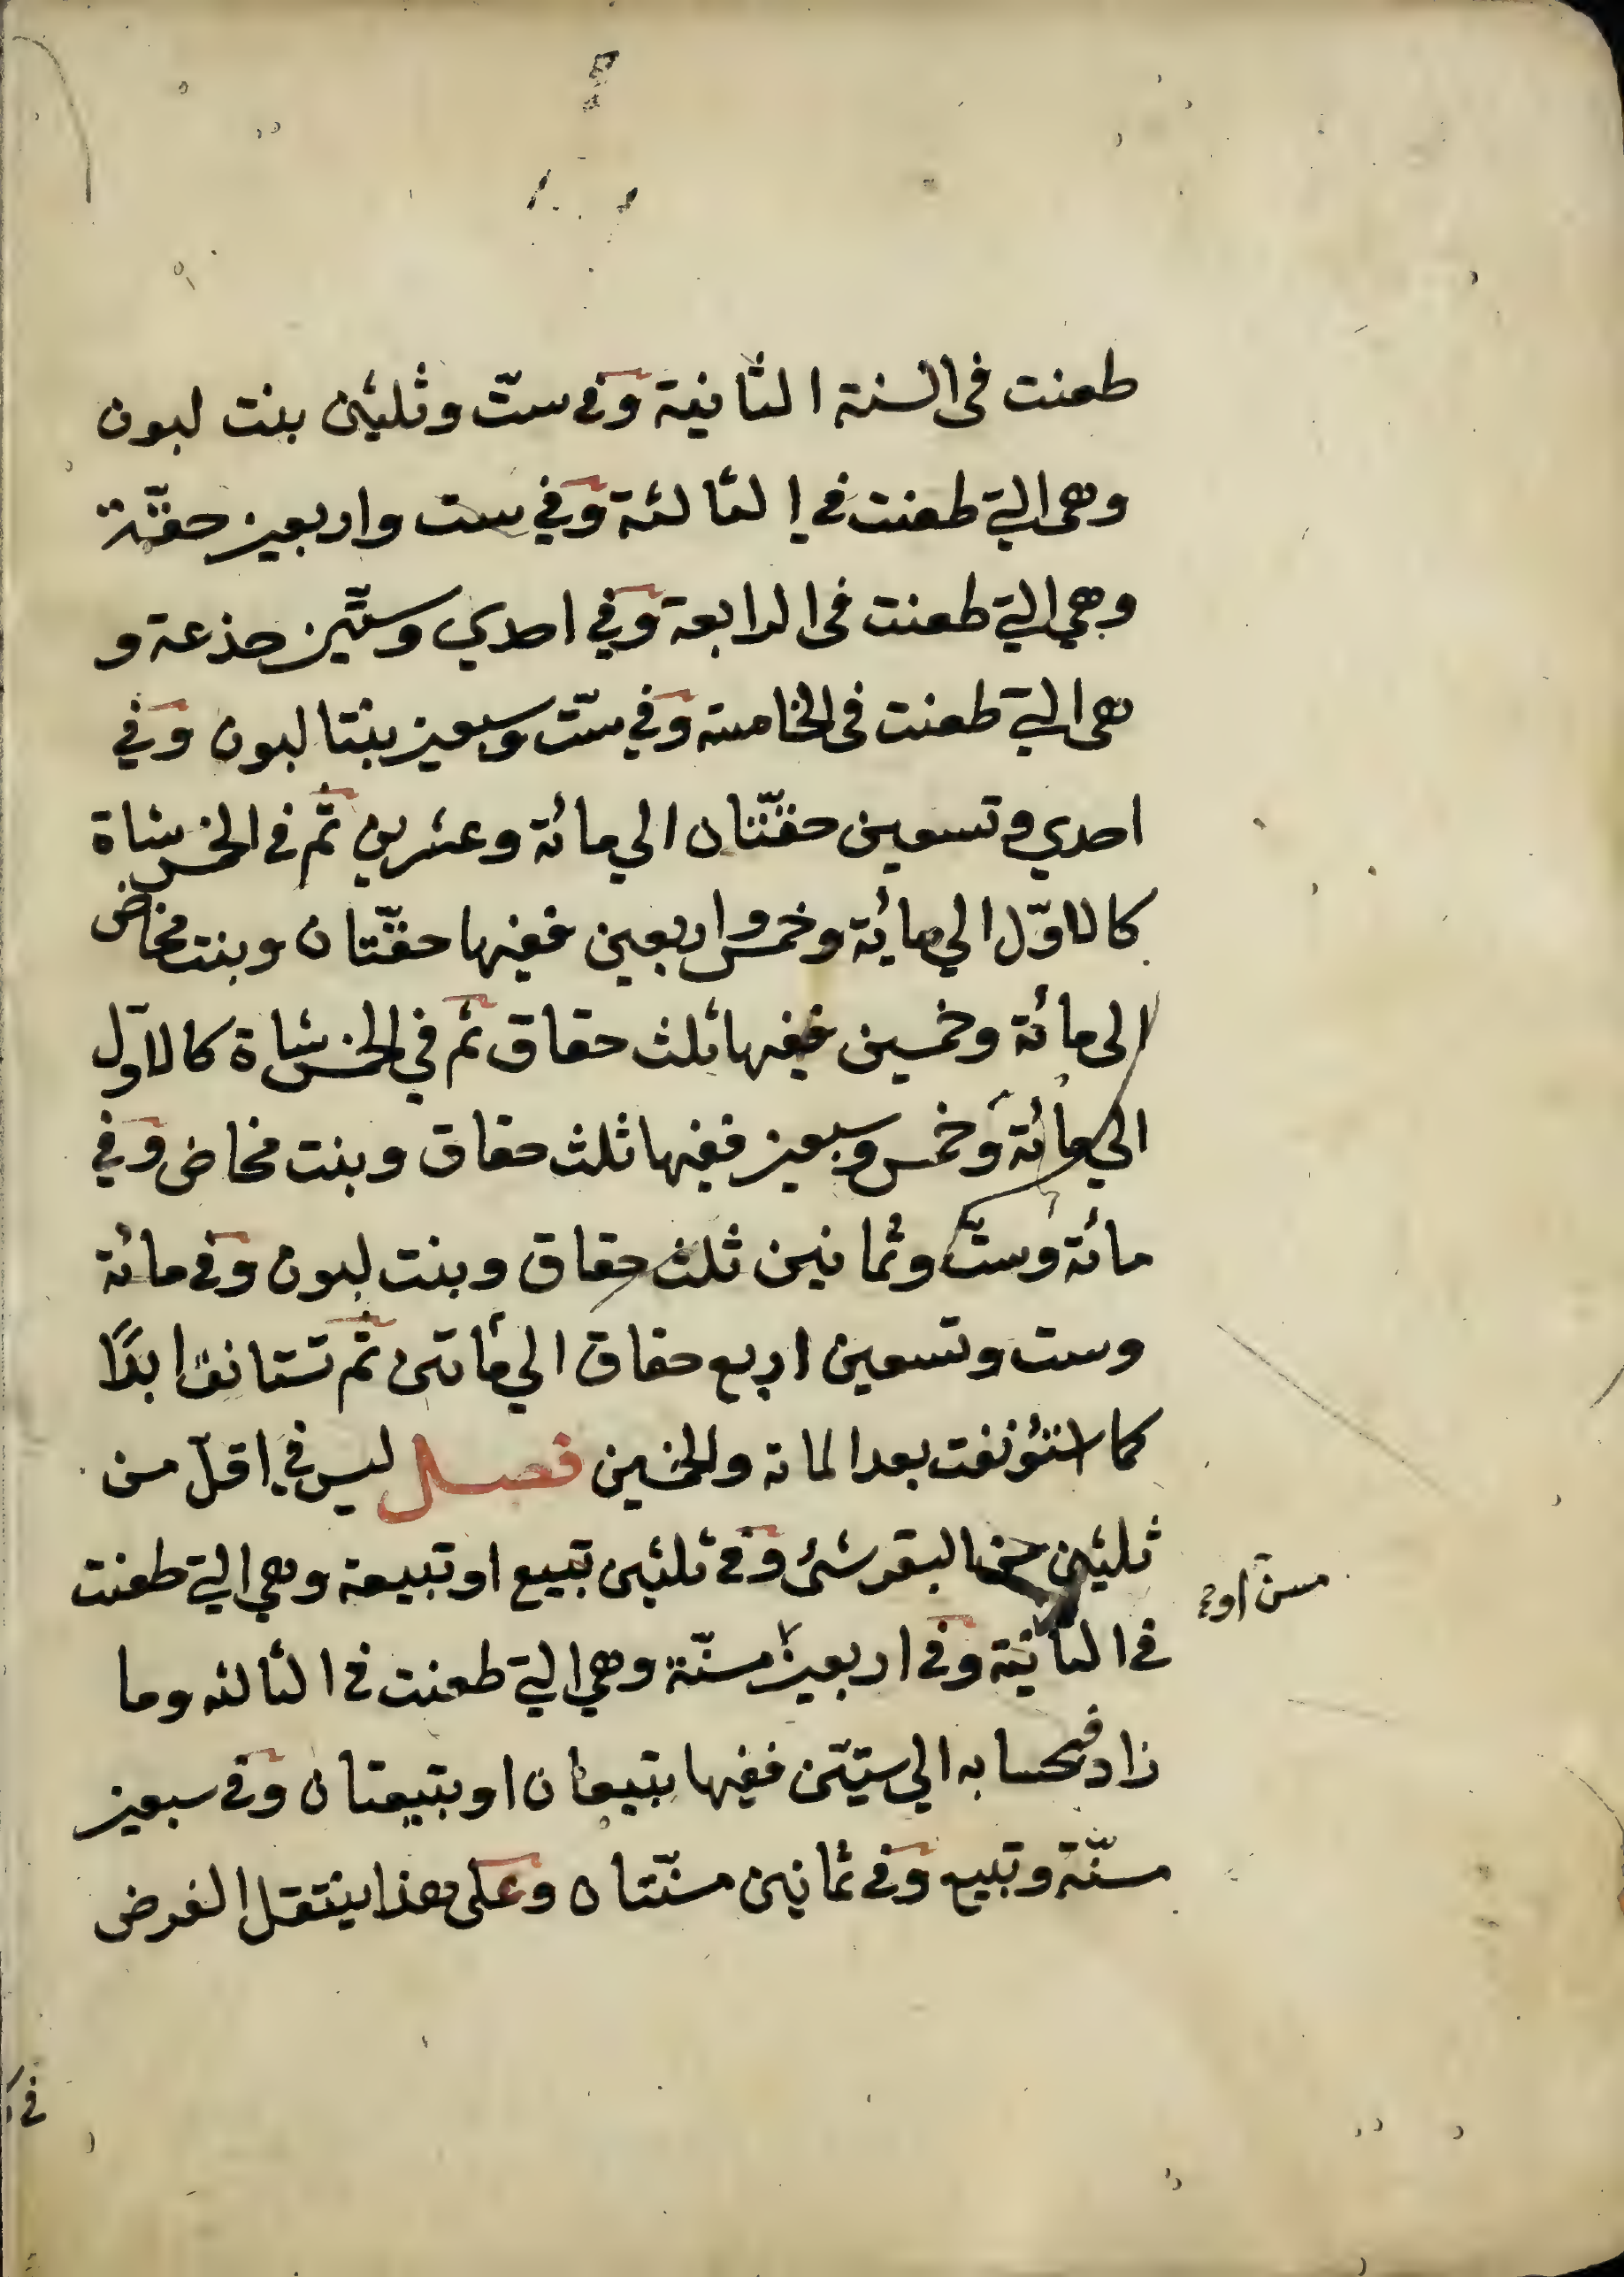 طعنت فى السنة الثانية وفى ستّ وثلثين بنت لبون
وهى التي طعنت في الثالثة وفي ست واربعين حقّة
وهي التي طعنت فى الرابعة وفي احدي وستّين جذعة و
هى التي طعنت فى الخامسة وفي ستّ وسبعين بنتا لبون وفي
احدي وتسعين حقّتان الي مائة وعشرين ثمّ فى الخمس شاة
كالاوّل الي مائة وخمس واربعين ففيها حقّتان وبنت مخاض
الى مائة وخمسين ففيها ثلث حقاق ثم في الخمس شاة كالاوّل
الي مائة وخمس وسبعين ففيها ثلث حقاق وبنت مخاض وفي
مائة وستّ وثمانين ثلث حقاق وبنت لبون وفى مائة
وست وتسعين اربع حقاق الي مأتى ثم تستانف ابدًا
كما استؤنفت بعد المائة والخمسين فصل ليس في اقلّ من
ثلثين من البقر شئ وفى ثلثين تبيع او تبيعة وهي التي طعنت
فى الثانية وفى اربعين مسنّة وهي التي طعنت فى الثالثه وما
مسن او
زاد فبحسابه الي ستّين ففيها تبيعان او تبيعتان وفى سبعين
مسنّة وتبيع وفى ثمانين مسنّتان وعلى هذا ينتقل الفرض